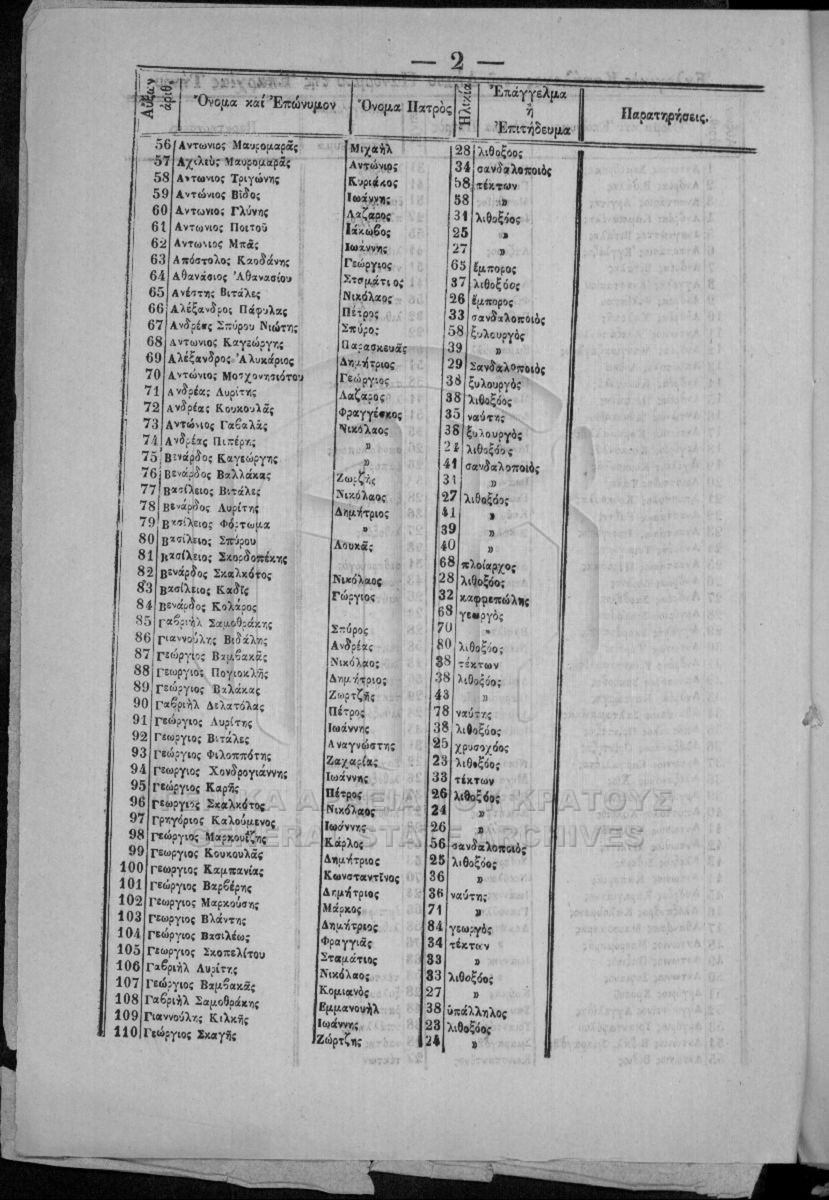 — 2 —
Αὔξων ἀριθ. Ὄνομα καί Ἐπώνυμον Ὄνομα Πατρὸς Ἡλικία Ἐπάγγελμα ἢ Ἐπιτήδευμα Παρατηρήσεις.
56 Αντωνιος Μαυρομαρᾶς Μιχαὴλ 28 λιθοξοος
57 Αχιλεὺς Μαυρομαρᾶς Αντώνιος 34 σανδαλοποιὸς
58 Αντωνιος Τριγώνης Κυριάκος 58 τέκτων
59 Αντώνιος Βῖδος Ιωάννης 58 »
60 Αντωνιος Γλύνης Λαζαρος 31 λιθοξόος
61 Αντωνιος Ποιτοῦ Ιάκωβος 25 »
62 Αντωνιος Μπᾶς Ιωάννης 27 »
63 Απόστολος Καρδάνης Γεώργιος 65 ἔμπορος
64 Αθανάσιος Ἀθανασίου Σταμάτιος 37 λιθοξόος
65 Ανέστης Βιτάλες Νικόλαος 26 ἔμπορος
66 Αλέξανδρος Πάφυλας Πέτρος 33 σανδαλοποιὸς
67 Ανδρέας Σπύρου Νιώτης Σπύρος 58 ξυλουργὸς
68 Αντωνιος Καγεώργης Παρασκευᾶς 39 »
69 Αλέξανδρος Ἀλυκάριος Δημήτριος 29 Σανδαλοποιὸς
70 Αντώνιος Μοσχονησιότου Γεώργιος 38 ξυλουργὸς
71 Ανδρέας Λυρίτης Λαζαρος 38 λιθοξόος
72 Ανδρέας Κουκουλᾶς Φραγγέσκος 35 ναύτης
73 Αντώνιος Γαβαλᾶς Νικόλαος 38 ξυλουργὸς
74 Ανδρέας Πιπέρης » 24 λιθοξόος
75 Βενάρδος Καγεώργης » 41 σανδαλοποιὸς
76 Βενάρδος Βαλλάκας Ζωρζῆς 31 »
77 Βασίλειος Βιτάλες Νικόλαος 27 λιθοξόος
78 Βενάρδος Λυρίτης Δημήτριος 41 »
79 Βασίλειος Φόρτωμα » 39 »
80 Βασίλειος Σπύρου Λουκᾶς 40 »
81 Βασίλειος Σκορδοπέκης 68 πλοίαρχος
82 Βενάρδος Σκαλκότος Νικόλαος 28 λιθοξόος
83 Βασίλειος Καδῖς Γώργιος 32 καφφεπώλης
84 Βενάρδος Κολάρος 68 γεωργὸς
85 Γαβριὴλ Σαμοθράκης Σπύρος 70 »
86 Γιαννούλης Βιδάλης Ανδρέας 80 λιθοξόος
87 Γεώργιος Βαμβακᾶς Νικόλαος 38 τέκτων
88 Γεωργιος Πογιοκλῆς Δημήτριος 38 λιθοξόος
89 Γεώργιος Βαλάκας Ζωρτζῆς 43 »
90 Γαβριὴλ Δελατόλας Πέτρος 78 ναύτης
91 Γεώργιος Λυρίτης Ιωάννης 38 λιθοξόος
92 Γεωργιος Βιτάλες Αναγνώστης 25 χρυσοχόος
93 Γεώργιος Φιλοππότης Ζαχαρίας 23 λιθοξόος
94 Γεωργιος Χονδρογιάννης Ιωάννης 33 τέκτων
95 Γεώργιος Καρῆς Πέτρος 26 λιθοξόος
96 Γεωργιος Σκαλκότος Νικόλαος 24 »
97 Γρηγόριος Καλούμενος Ιωάννης 26 »
98 Γεώργιος Μαρκουΐζης Κάρλος 56 σανδαλοποιὸς
99 Γεώργιος Κουκουλᾶς Δημήτριος 25 λιθοξόος
100 Γεωργιος Καμπανίας Κωνσταντῖνος 36 »
101 Γεώργιος Βαρβέρης Δημήτριος 36 ναύτης
102 Γεωργιος Μαρκούσης Μάρκος 71 »
103 Γεωργιος Βλάντης Δημήτριος 84 γεωργὸς
104 Γεώργιος Βασιλέως Φραγγιᾶς 34 τέκταν
105 Γεωργιος Σκοπελίτου Σταμάτιος 33 »
106 Γαβριὴλ Λυρίτης Νικόλαος 33 λιθοξόος
107 Γεώργιος Βαμβακᾶς Κομιανὸς 27 »
108 Γαβριὴλ Σαμοθράκης Εμμανουὴλ 38 ὑπάλληλος
109 Γιαννούλης Κιλκῆς Ιωάννης 23 λιθοξόος
110 Γεώργιος Σκαγῆς Ζώρτζης 24 »
ΚΑ ΑΡΧΕΙΑ ΤΟΥ ΚΡΑΤΟΥΣ
GENERAL STATE ARCHIVES